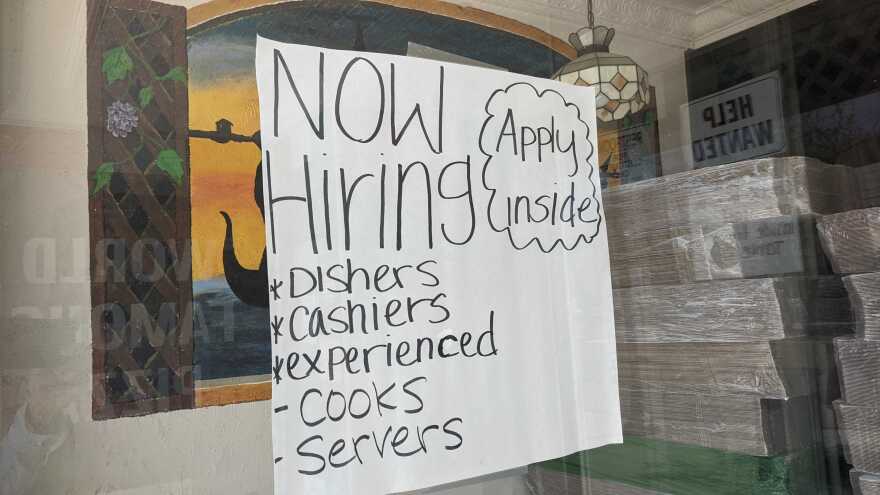 NOW
Hiring
Apply
inside
*DISHERS
*Cashiers
*experienced
- COOKS
- Servers
HELP
WANTED
WORLD
FAMOUS
PIZZA